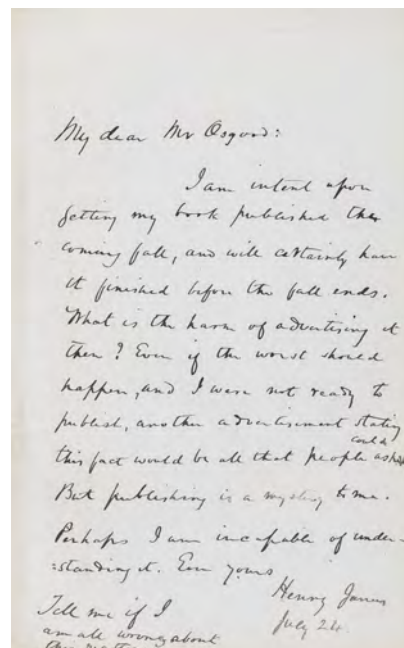 My dear Mr Osgood:
I am intent upon
getting my book published the
coming fall, and will certainly have
it finished before the fall ends.
What is the harm of advertising it
then? Even if the worst should
happen, and I were not ready to
publish, another advertisement stating
could
this fact would be all that people ask
But publishing is a mystery to me.
Perhaps I am incapable of under-
:standing it. Ever yours
Henry James
July 24.
Tell me if I
am all wrong about